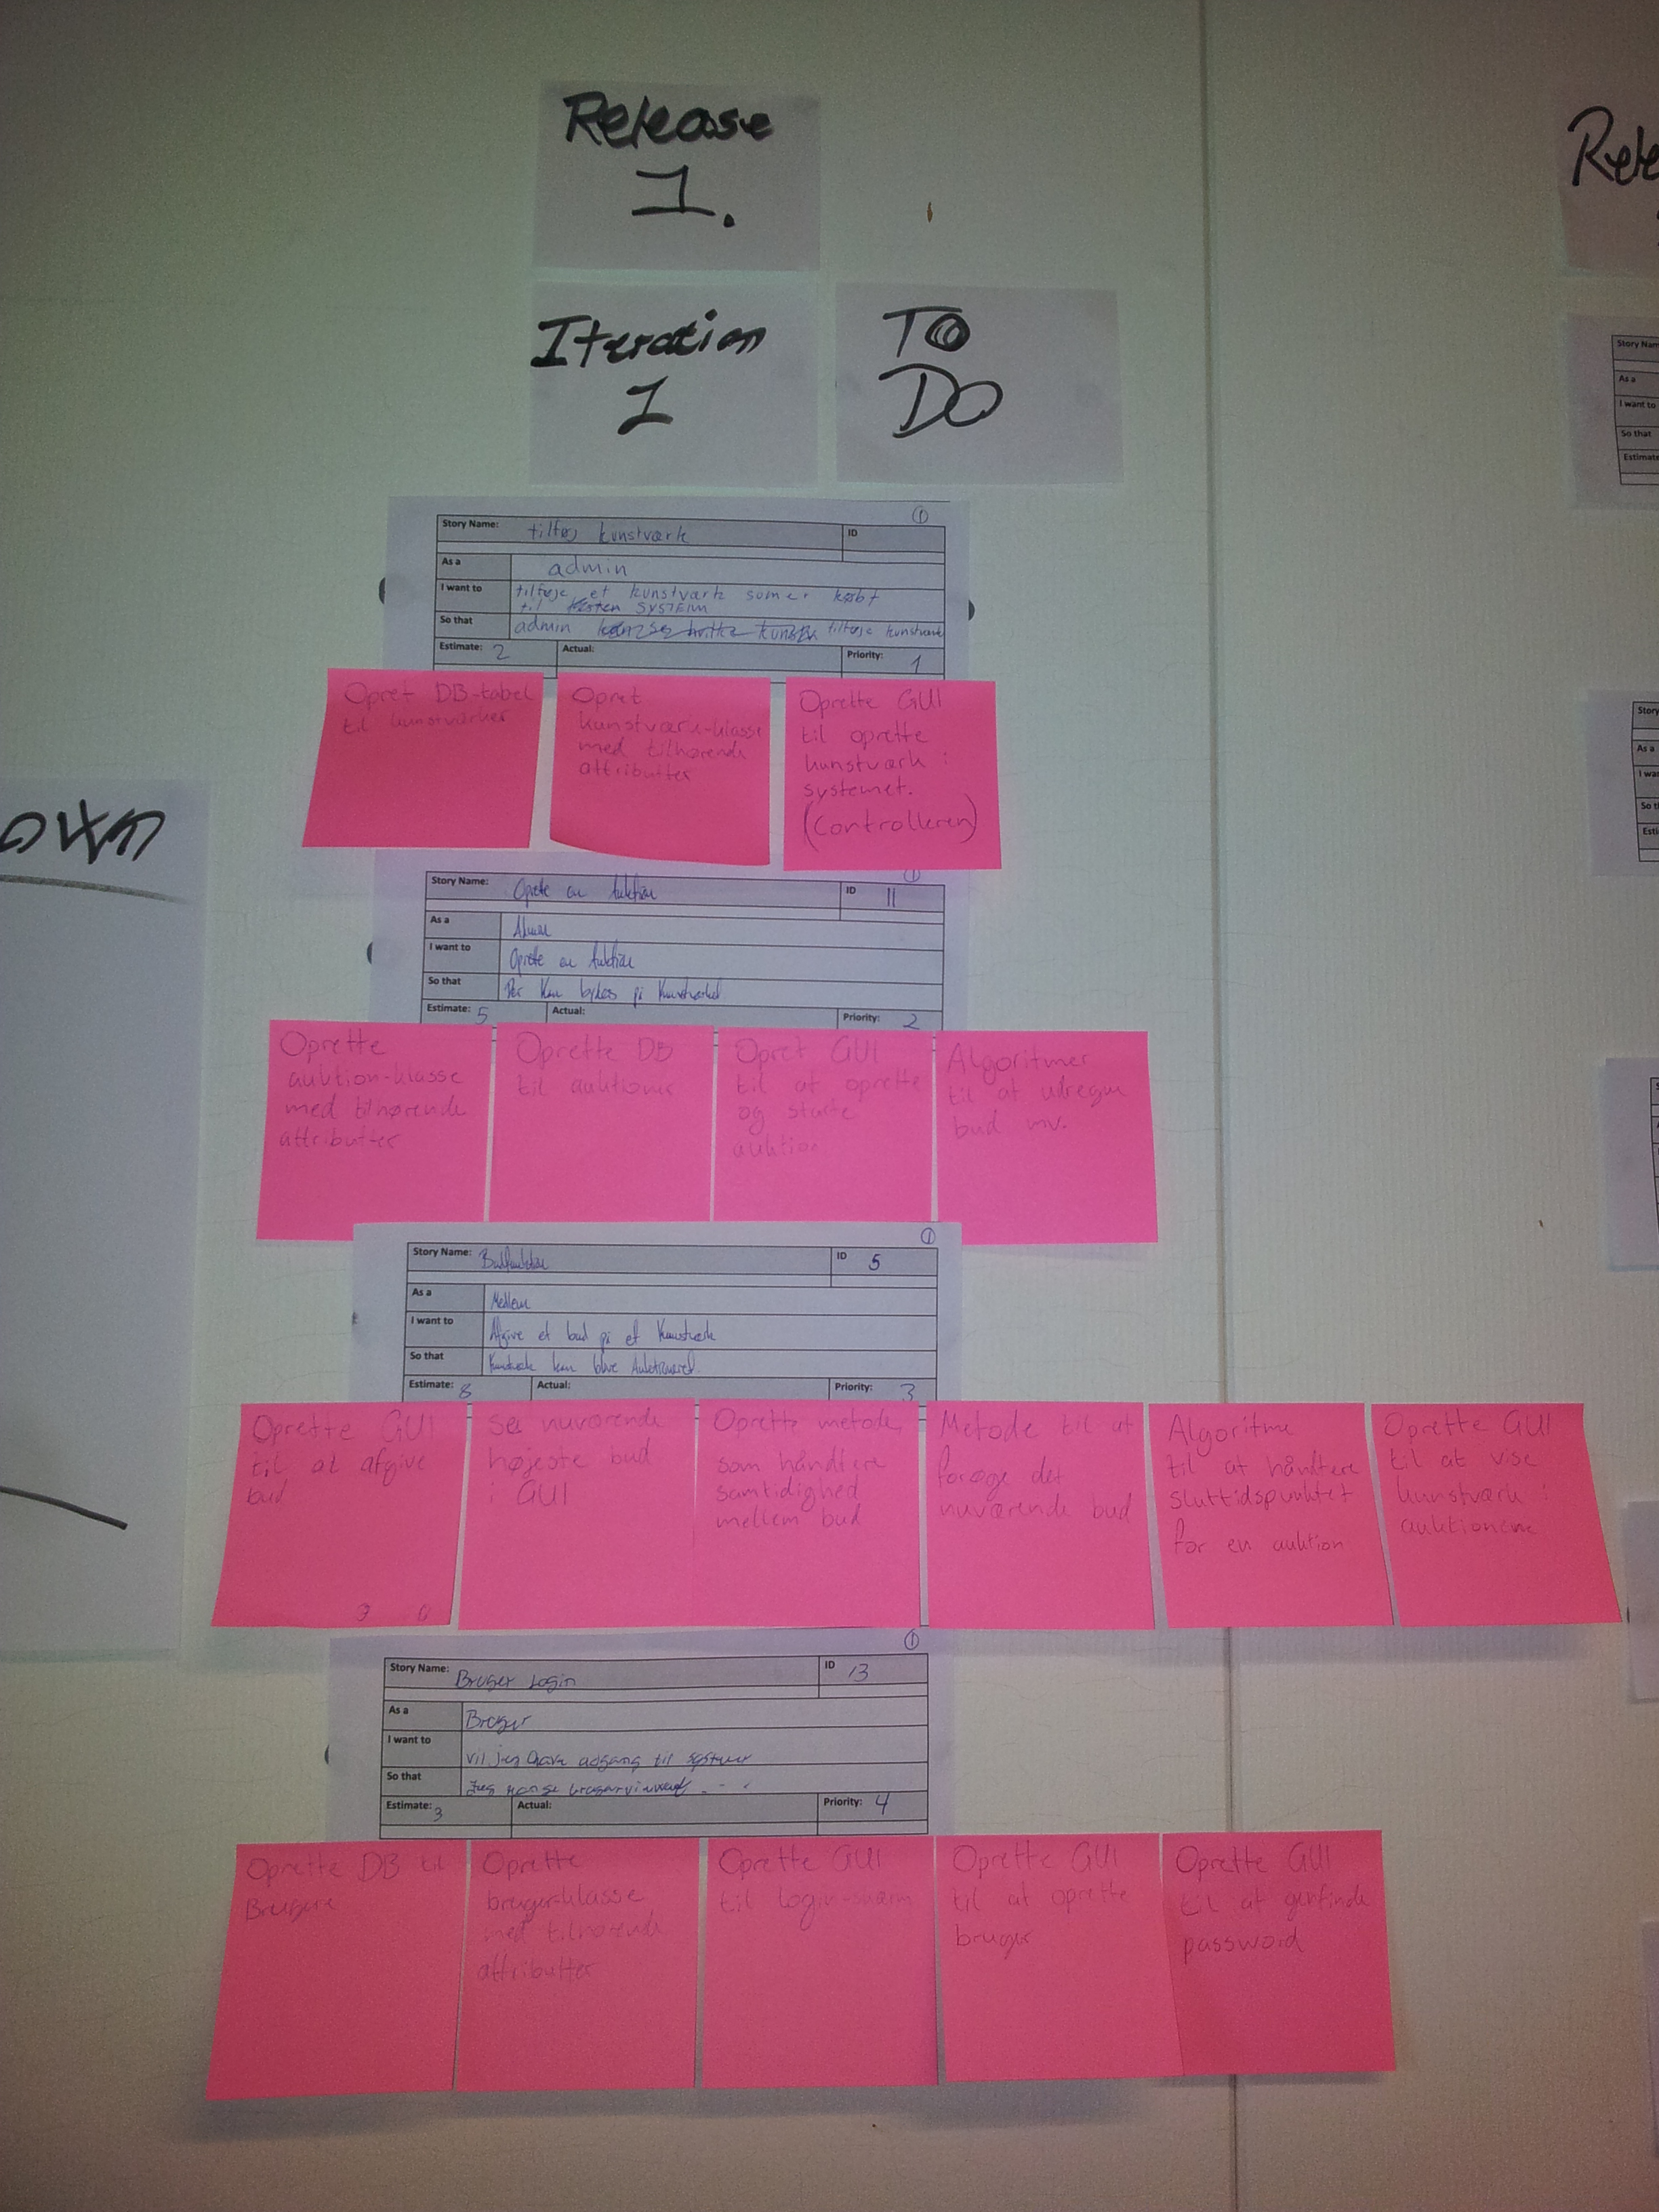 Release
1.
Iteration
1
TO
DO
1
Story Name: tilføj kunstværk ID
As a admin
I want to tilføje et kunstværk som er købt
til SYSTEM
So that admin tilføje kunstværk
Estimate: 2 Actual: Priority: 1
Opret DB-tabel
til kunstværker
Opret
kunstværk-klasse
med tilhørende
attributter
Oprette GUI
til oprette
kunstværk i
systemet.
(Controlleren)
1
Story Name: Oprette en Auktion ID 11
As a Admin
I want to Oprette en Auktion
So that Der kan bydes på Kunstværket
Estimate: 5 Actual: Priority: 2
Oprette
auktion-klasse
med tilhørende
attributter
Oprette DB
til auktioner
Opret GUI
til at oprette
og starte
auktion
Algoritmer
til at udregne
bud mv.
1
Story Name: Budfunktion ID 5
As a Medlem
I want to Afgive et bud på et Kunstværk
So that Kunstværk kan blive Auktioneret.
Estimate: 8 Actual: Priority: 3
Oprette GUI
til at afgive
bud
Se nuværende
højeste bud
i GUI
Oprette metode,
som håndtere
samtidighed
mellem bud
Metode til at
forøge det
nuværende bud
Algoritme
til at håndtere
sluttidspunktet
for en auktion
Oprette GUI
til at vise
kunstværk i
auktionerne
1
Story Name: Bruger Login ID 13
As a Bruger
I want to vil jeg have adgang til system
So that Jeg
Estimate: 3 Actual: Priority: 4
Oprette DB til
Brugere
Oprette
bruger-klasse
med tilhørende
attributter
Oprette GUI
til login-skærm
Oprette GUI
til at oprette
bruger
Oprette GUI
til at genfinde
password
own
Rele
Story Nam
As a
I want to
So that
Estimate
Story
As a
I wa
So t
Esti